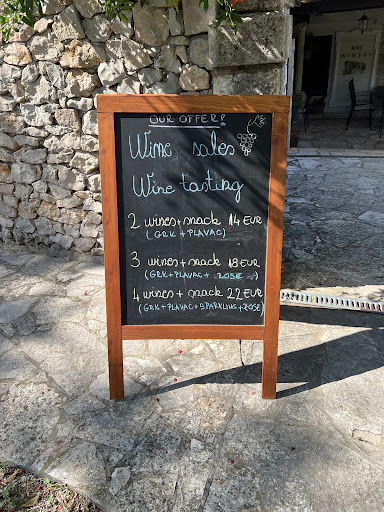 WINERY
OUR OFFER!
Wine sales
Wine tasting
2 wines + snack 14 EUR
(GRK + PLAVAC)
3 wines + snack 18 EUR
(GRK + PLAVAC + ROSE)
4 wines + snack 22 EUR
(GRK + PLAVAC + SPARKLING + ROSE)